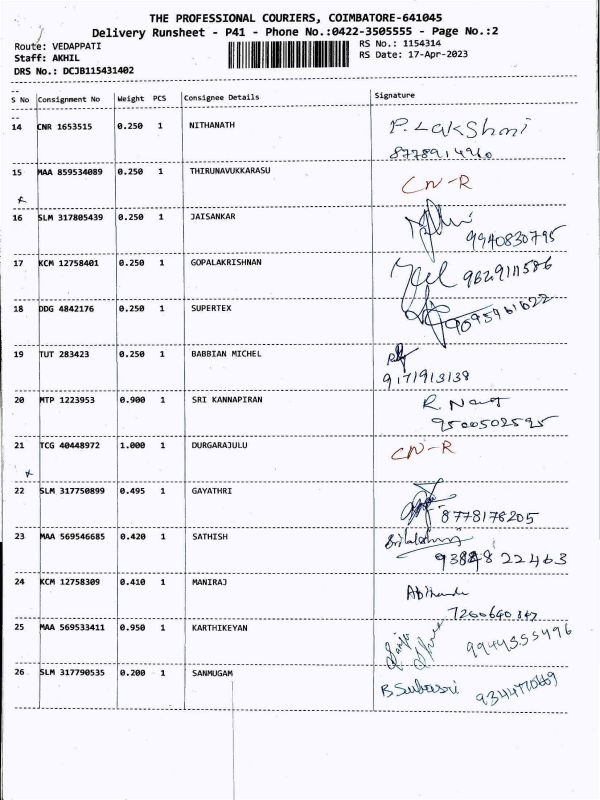 THE PROFESSIONAL COURIERS, COIMBATORE-641045
Delivery Runsheet - P41 - Phone No.:0422-3505555 - Page No.:2
Route: VEDAPPATI
RS No.: 1154314
Staff: AKHIL
RS Date: 17-Apr-2023
DRS No.: DCJB115431402
S No Consignment No Weight PCS Consignee Details Signature
14 CNR 1653515 0.250 1 NITHANATH P. Lakshmi
8778914960
15 MAA 859534089 0.250 1 THIRUNAVUKKARASU CN-R
16 SLM 317805439 0.250 1 JAISANKAR
9940830795
17 KCM 12758401 0.250 1 GOPALAKRISHNAN
18 DDG 4842176 0.250 1 SUPERTEX
19 TUT 283423 0.250 1 BABBIAN MICHEL
9171913138
20 MTP 1223953 0.900 1 SRI KANNAPIRAN
9500502595
21 TCG 40448972 1.000 1 DURGARAJULU CN-R
22 SLM 317750899 0.495 1 GAYATHRI
8778178205
23 MAA 569546685 0.420 1 SATHISH
24 KCM 12758309 0.410 1 MANIRAJ
25 MAA 569533411 0.950 1 KARTHIKEYAN
26 SLM 317790535 0.200 1 SANMUGAM B Subasri